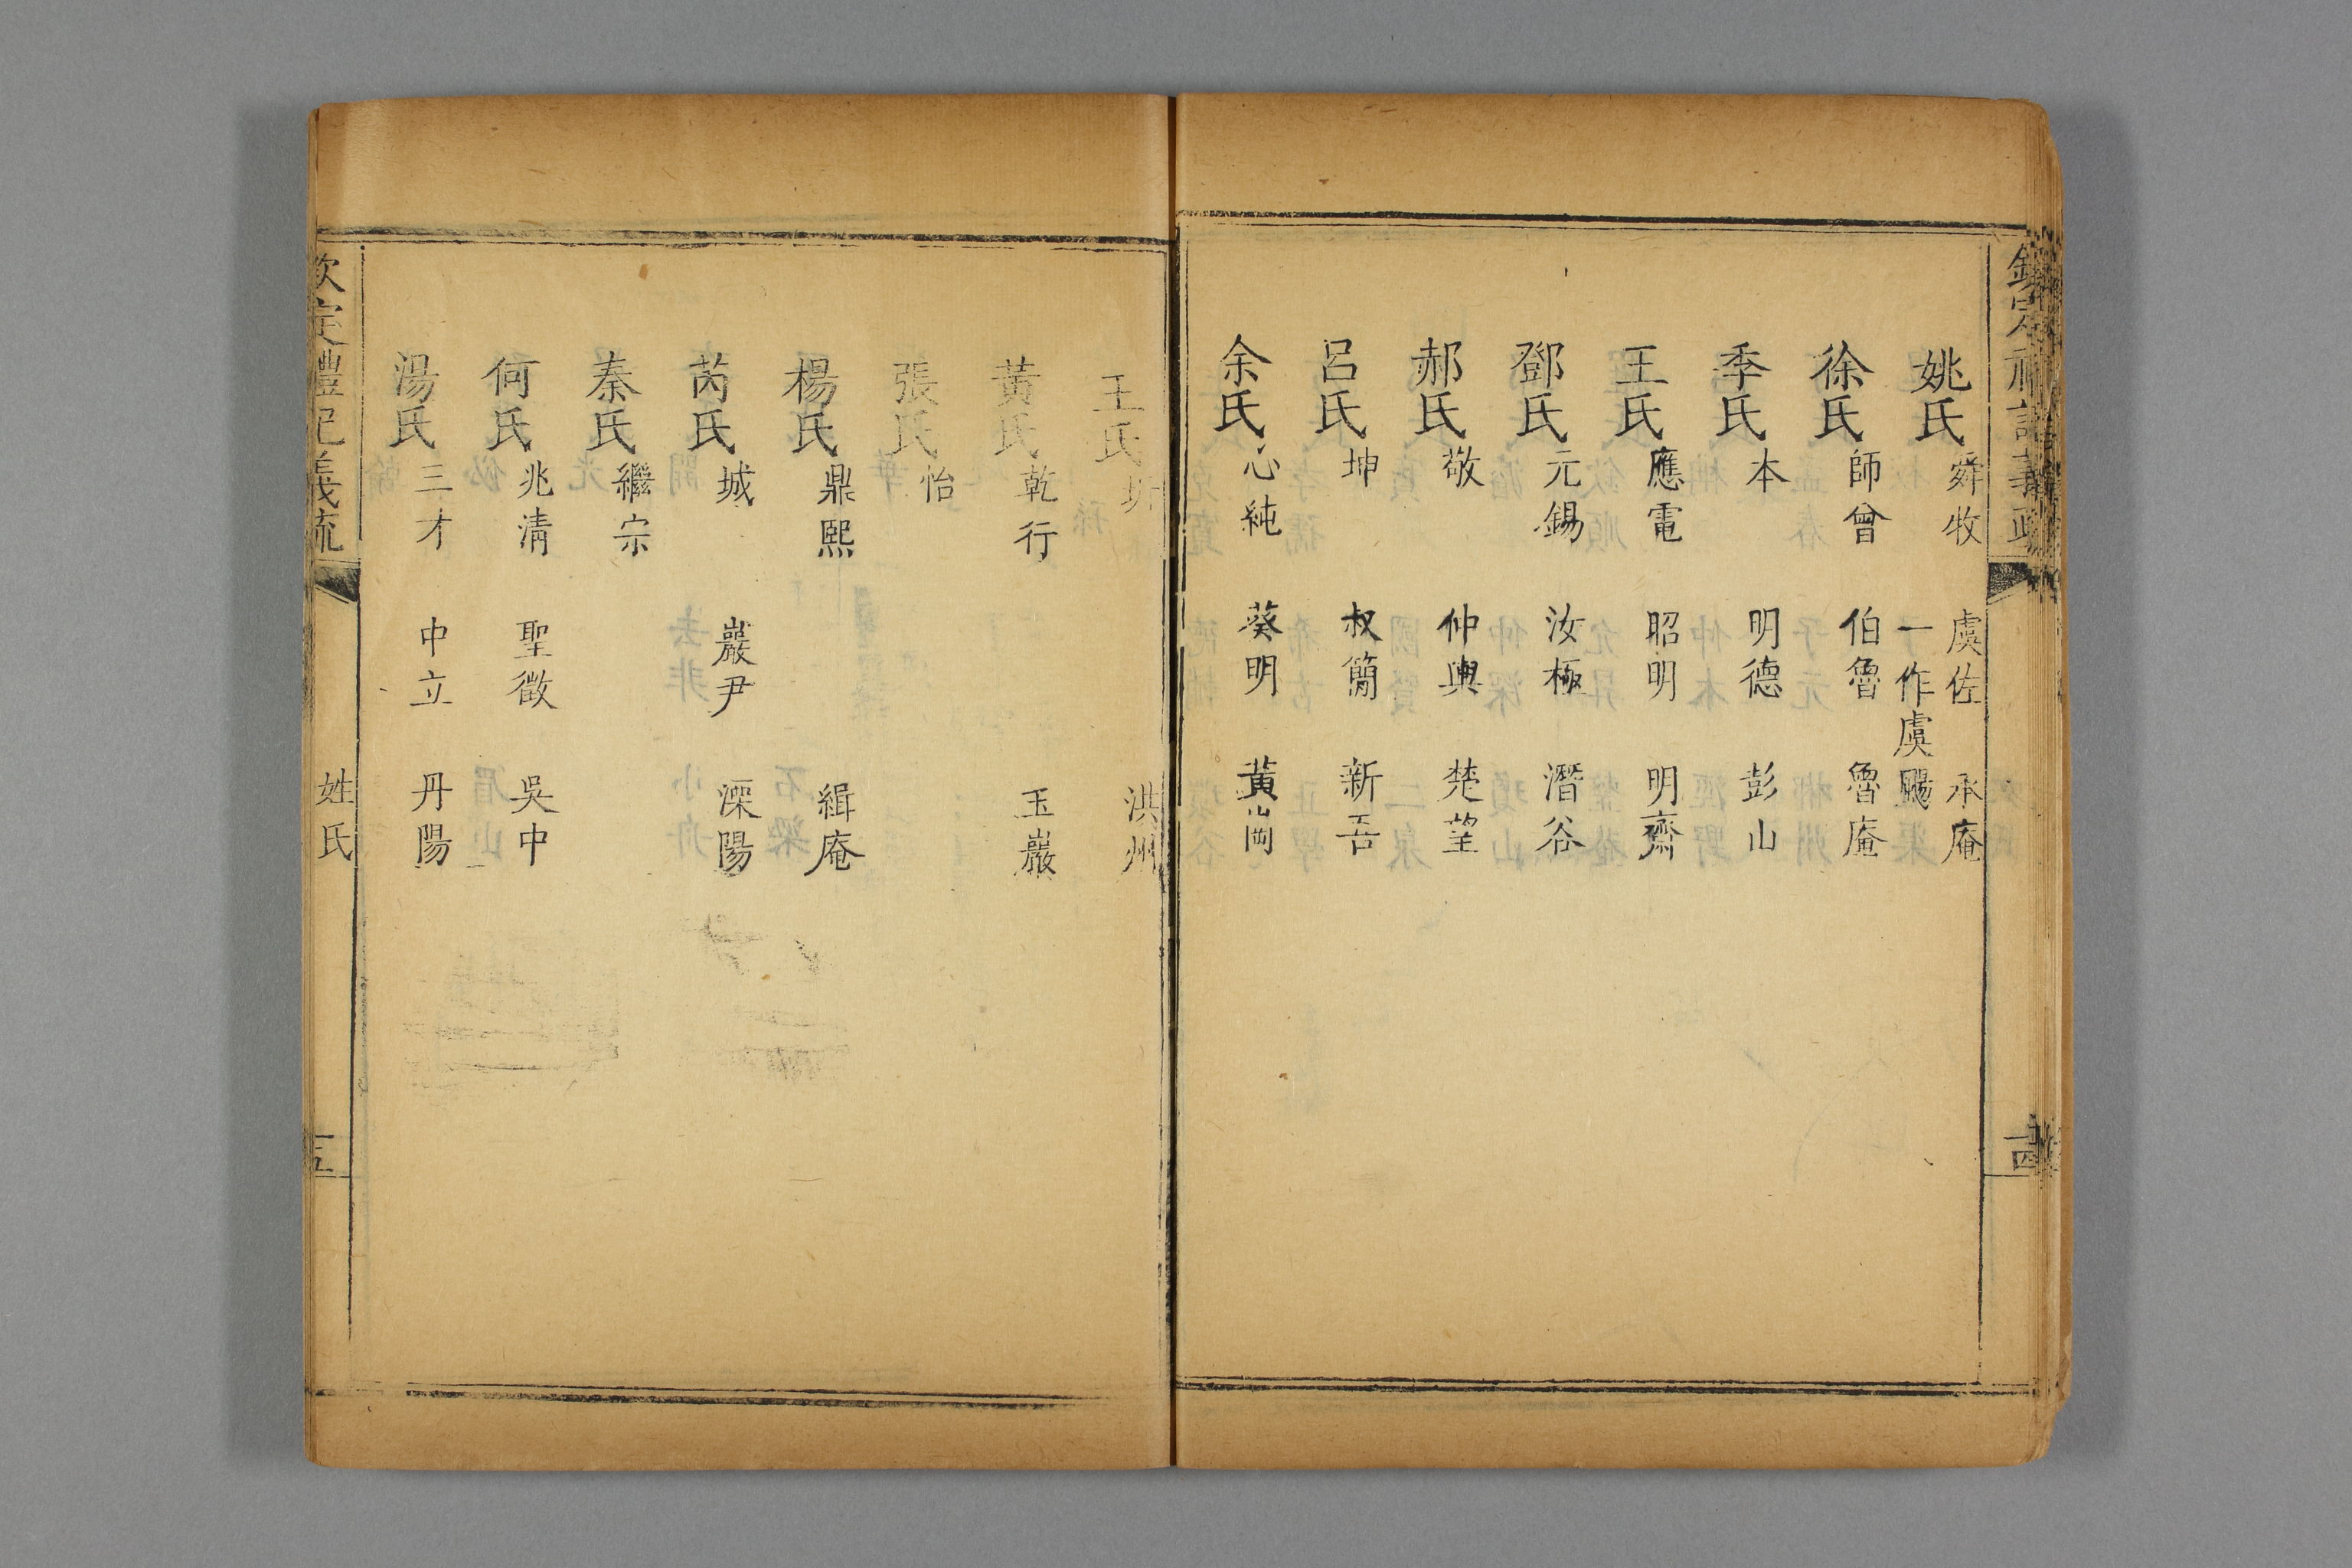 欽定禮記義疏
十四
姚氏舜牧 虞佐 承庵
一作虞颺
徐氏師曾 伯魯 魯庵
季氏本 明德 彭山
王氏應電 昭明 明齋
鄧氏元錫 汝極 潛谷
郝氏敬 仲輿 楚望
呂氏坤 叔簡 新吾
余氏心純 葵明 黃岡
王氏圻 洪州
黃氏乾行 玉巖
張氏怡
楊氏鼎熙 緝庵
芮氏城 巖尹 溧陽
秦氏繼宗
何氏兆清 聖徵 吳中
湯氏三才 中立 丹陽
欽定禮記義疏 姓氏 十五